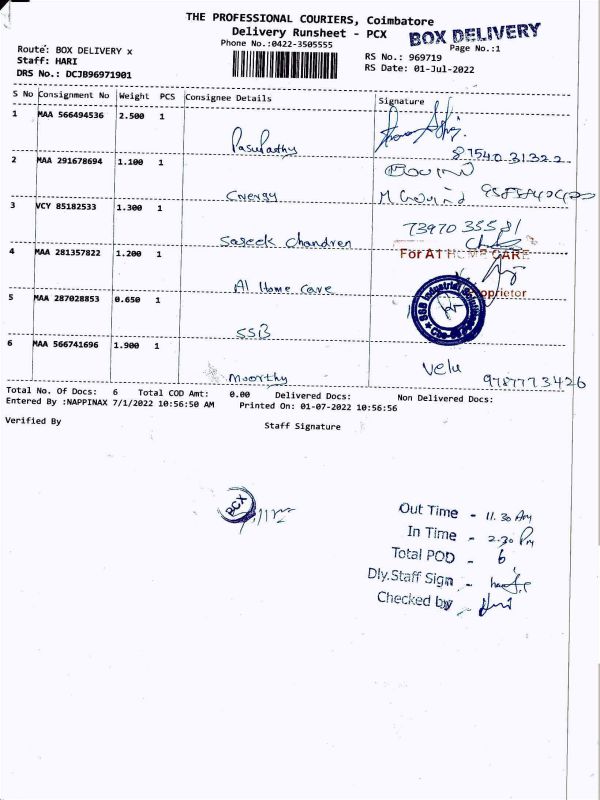 THE PROFESSIONAL COURIERS, Coimbatore
Delivery Runsheet - PCX
BOX DELIVERY
Phone No.:0422-3505555
Page No.:1
Route: BOX DELIVERY x
Staff: HARI
DRS No.: DCJB96971901
RS No.: 969719
RS Date: 01-Jul-2022
S No Consignment No Weight PCS Consignee Details Signature
1 MAA 566494536 2.500 1
Pasupathy 87540 31322
2 MAA 291678694 1.100 1
Energy M Govind
3 VCY 85182533 1.300 1 73970 35581
Saseek Chandren
4 MAA 281357822 1.200 1 For AT HOME CARE
At Home Care Proprietor
5 MAA 287028853 0.650 1
SSB
6 MAA 566741696 1.900 1 Velu
Moorthy 9787773426
Total No. Of Docs: 6 Total COD Amt: 0.00 Delivered Docs: Non Delivered Docs:
Entered By :NAPPINAX 7/1/2022 10:56:50 AM Printed On: 01-07-2022 10:56:56
Verified By Staff Signature
PCX
Out Time - 11.30 Am
In Time - 2.30 Pm
Total POD - 6
Dly.Staff Sign -
Checked by - Hari